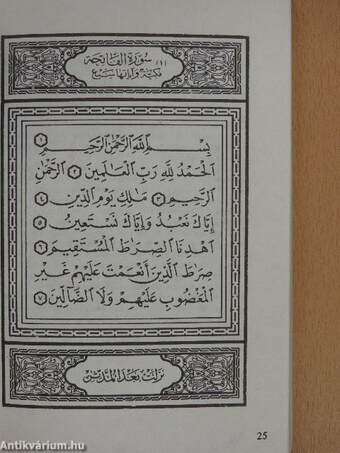 (١) سورة الفاتحة
مكية وآياتها سبع
بِسْمِ اللَّهِ الرَّحْمَٰنِ الرَّحِيمِ ١
الْحَمْدُ لِلَّهِ رَبِّ الْعَالَمِينَ ٢ الرَّحْمَٰنِ
الرَّحِيمِ ٣ مَالِكِ يَوْمِ الدِّينِ ٤
إِيَّاكَ نَعْبُدُ وَإِيَّاكَ نَسْتَعِينُ ٥
اهْدِنَا الصِّرَاطَ الْمُسْتَقِيمَ ٦
صِرَاطَ الَّذِينَ أَنْعَمْتَ عَلَيْهِمْ غَيْرِ
الْمَغْضُوبِ عَلَيْهِمْ وَلَا الضَّالِّينَ ٧
نزلت بعد المدثر
25
Antikvárium.hu